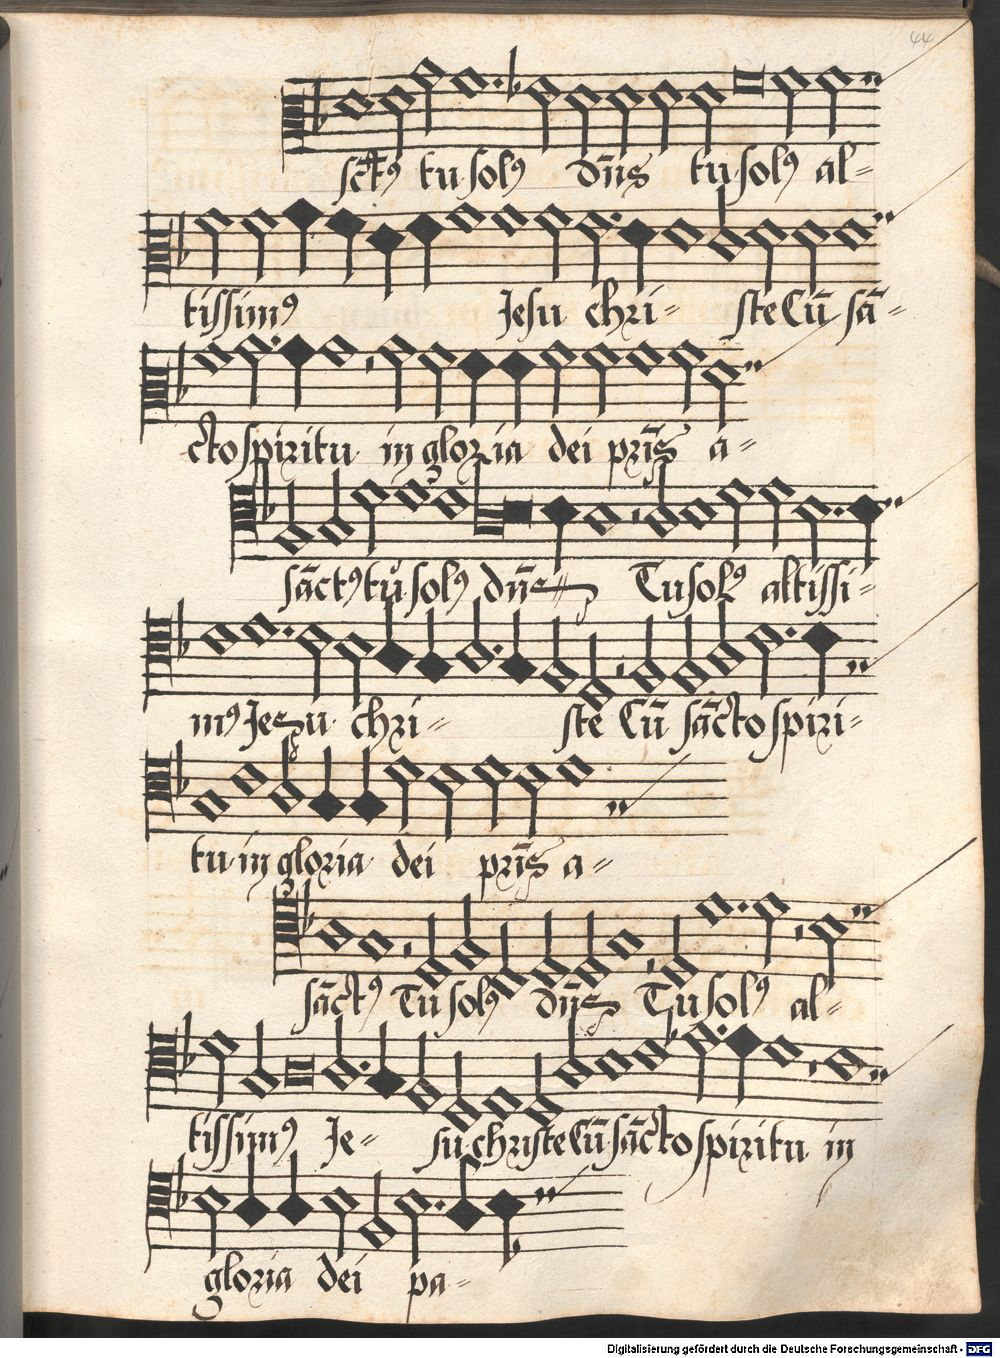 44
sct9 tu solꝰ dn̄s tu solꝰ al=
tissimꝰ Jesu chri= ste Cū sā=
cto spiritu in gloria dei pr̄is a=
sāctꝰ tu solꝰ dn̄s Tu solꝰ altissi=
mꝰ Jesu chri= ste Cū sācto spiri=
tu in gloria dei pr̄is a=
sāctꝰ Tu solꝰ dn̄s Tu solꝰ al=
tissimꝰ Je= su christe Cū sācto spiritu in
gloria dei pa=
Digitalisierung gefördert durch die Deutsche Forschungsgemeinschaft - DFG